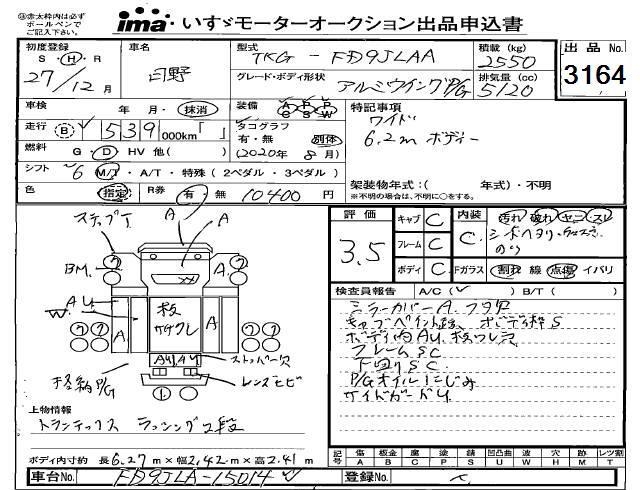 ㊟赤太枠内は必ず
ボールペンで
ご記入下さい。
ima いすゞモーターオークション出品申込書
初度登録 S・H・R 27/12月
車名 日野
型式 TKG-FD9JLAA
積載(kg) 2550
出品No. 3164
グレード・ボディ形状 アルミウイングP/G
排気量(cc) 5120
車検 年・月・抹消
装備 A P P C S W
特記事項 ワイド
6.2mボディー
走行 B 539 000km「」
タコグラフ 有・無 別体
(2020年8月)
燃料 G・D・HV 他( )
シフト 6 M/T・A/T・特殊(2ペダル・3ペダル)
架装物年式:( 年式)・不明
※不明の場合は、不明に○をする。
色 指定 R券 有 無 10400円
ステップ下 A A
BM. A.
AU W A 板 ササクレ A
AU, AU ストッパー欠
格納P/G レンズヒビ
評価 3.5
キャブ C
フレーム C
ボディ C
内装 C. 汚れ 破れ ヤニ スレ
シートヘタリ
Fガラス 割 線 点傷 イバリ
検査員報告 A/C( ) B/T( )
ミラーカバーA.
フレームSC
下回りSC.
P/Gオイルにじみ
サイドガードU
上物情報
トランテックス ラッシング2段
ボディ内寸約 長6.27m×幅2.42m×高2.41m
記号 傷 A 板金 B 腐 C 塗 P サビ S 凹凸曲 U 波 W 穴 H 跡 M レツ割 T
車台No. FD9JLA-15014
登録No.